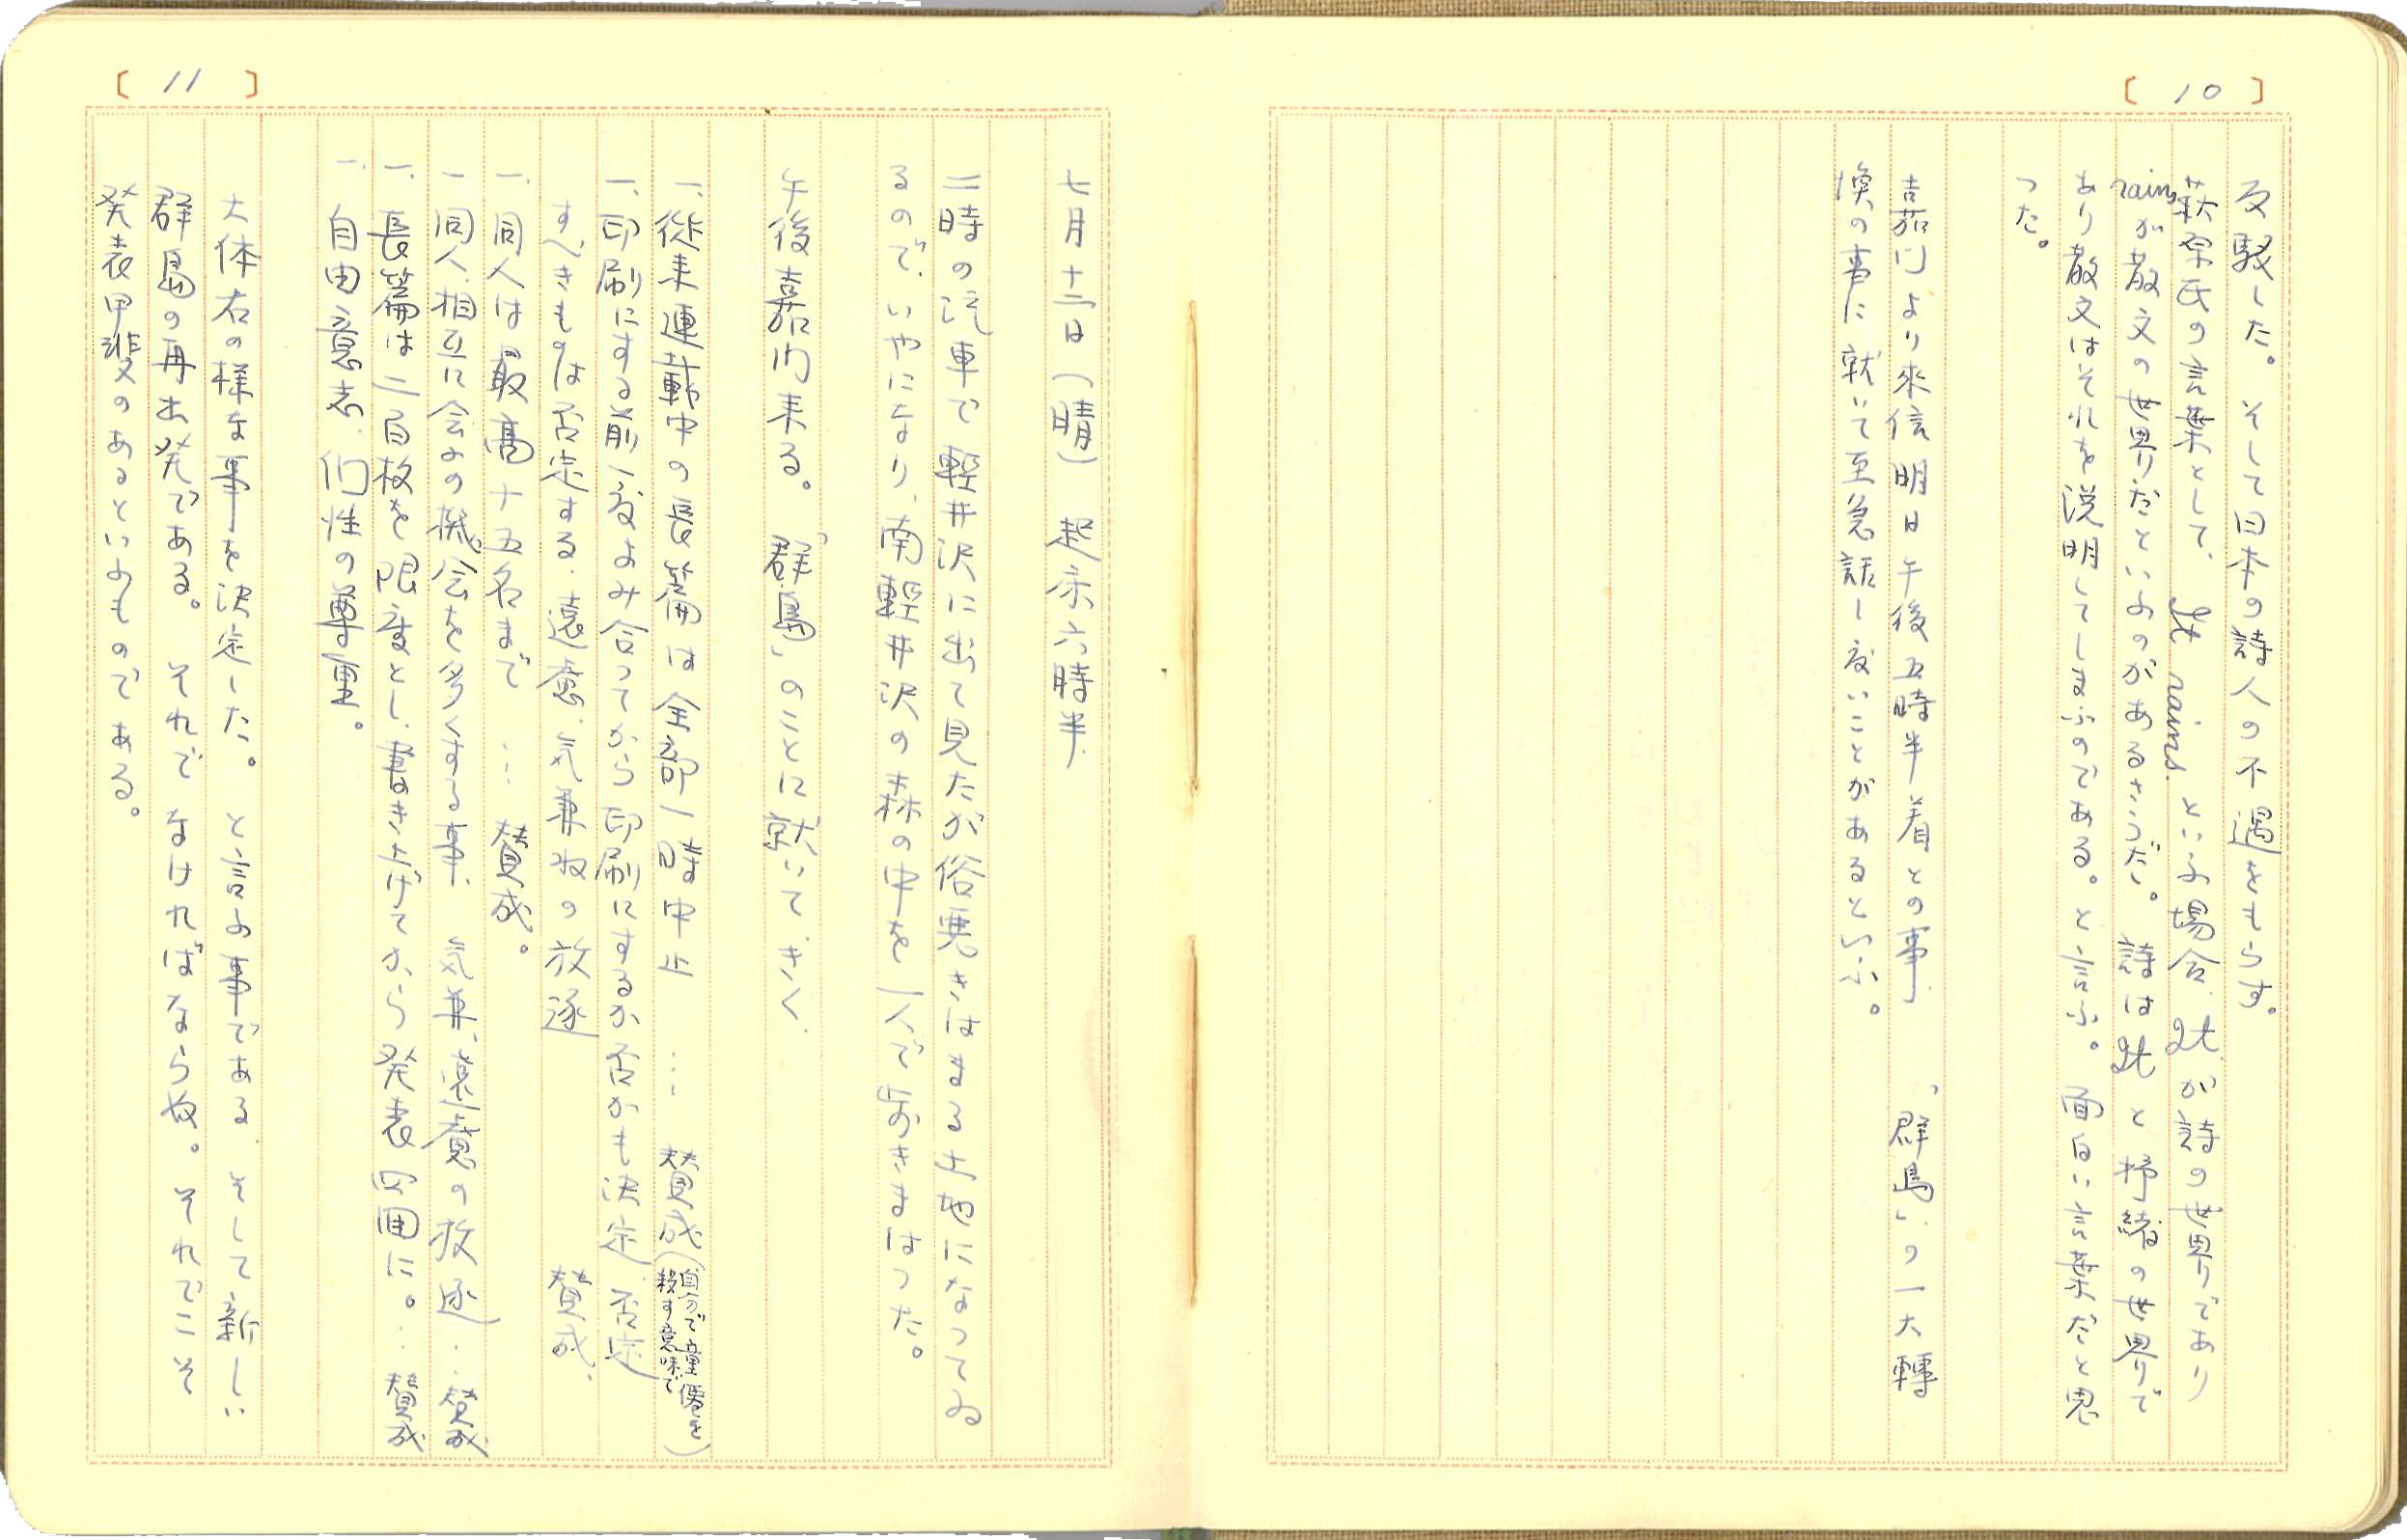 [ 10 ]
反駁した。そして日本の詩人の不遇をもらす。
萩原氏の言葉として、It rains. といふ場合、It が詩の世界であり
rains が散文の世界だといふのがあるさうだ。詩は It と抒緒の世界で
あり散文はそれを説明してしまふのである。と言ふ。面白い言葉だと思
つた。
嘉門より來信 明日午後五時半着との事 「群島」の一大轉
換の事に就いて至急話し度いことがあるといふ。
[ 11 ]
七月十二日(晴) 起床六時半
二時の汽車で軽井沢に出て見たが俗悪きはまる土地になつてゐ
るので、いやになり、南軽井沢の森の中を一人で歩きまはつた。
午後嘉門来る。「群島」のことに就いてきく、
一、従来連載中の長篇は全部一時中止 … 賛成(自分で童僕を殺す意味で)
一、印刷にする前一度よみ合つてから印刷にするか否かも決定 否定
すべきものは否定する、遠慮、気兼ねの放逐 賛成、
一、同人は最高十五名まで … 賛成。
一 同人、相互に会ふの機会を多くする事、気兼、遠慮の放逐…賛成
一、長篇は二百枚を限度とし、書き上げてから発表四回に。…賛成
一、自由意志、個性の尊重。
大体右の様な事を決定した。と言ふ事である、そして新しい
群島の再出発である。それでなければならぬ。それでこそ
発表甲斐のあるといふものである。